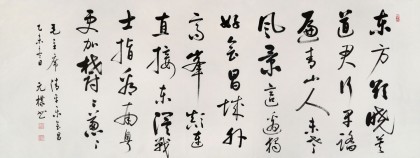 东方欲晓莫
道君行早踏
遍青山人未老
风景这边独
好会昌城外
高峰颠连
直接东溟战
士指看南粤
更加郁郁葱葱
毛主席清平乐会昌